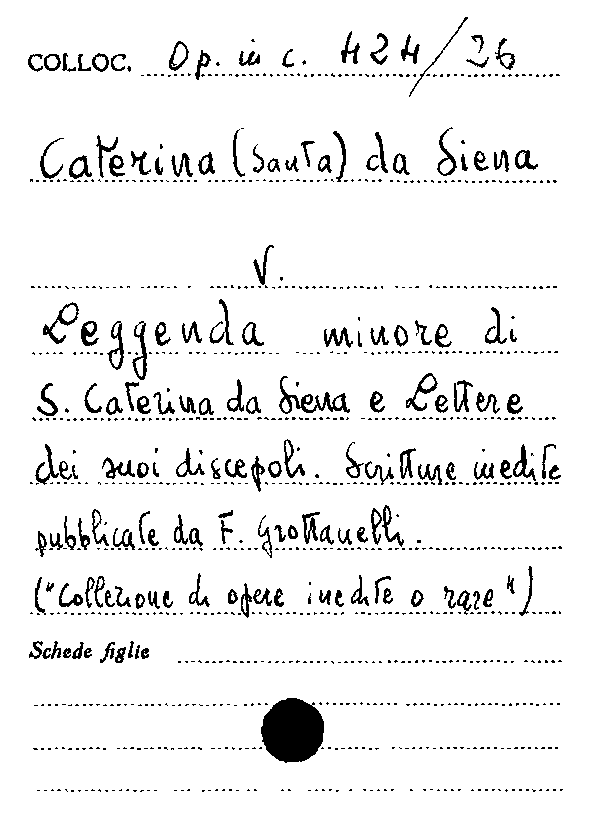 COLLOC. Op. in c. 424/26
Caterina (Santa) da Siena
V.
Leggenda minore di
S. Caterina da Siena e Lettere
dei suoi discepoli. Scritture inedite
pubblicate da F. Grottanelli.
("Collezione di opere inedite o rare")
Schede figlie